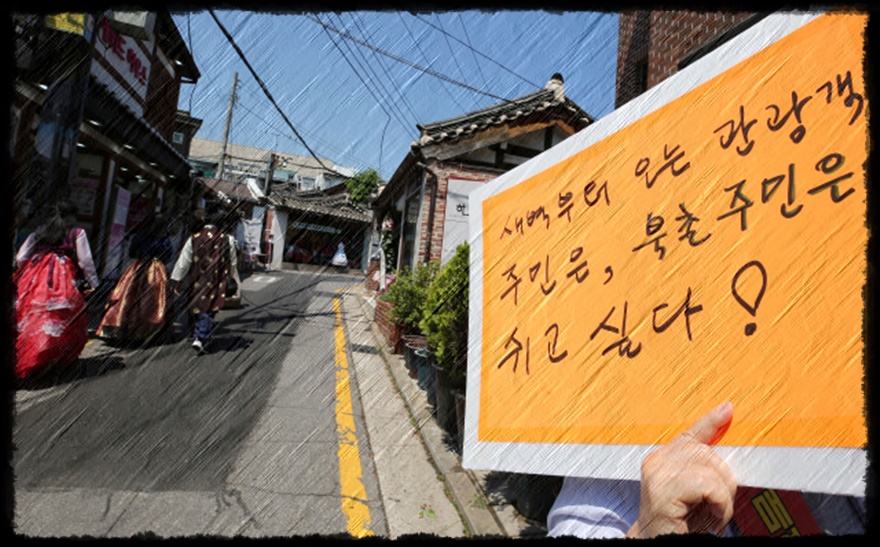 새벽부터 오는 관광객
주민은, 북촌주민은
쉬고 싶다!
한